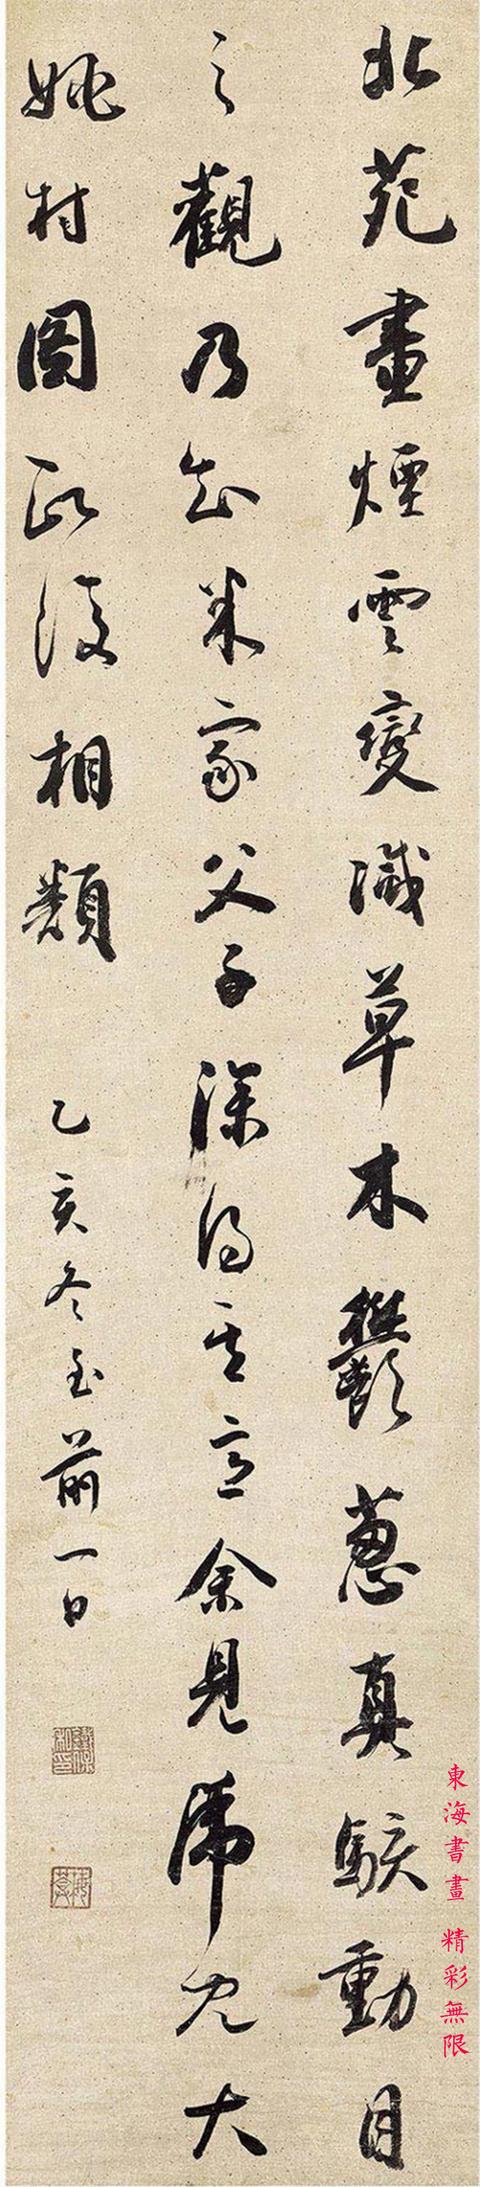 北苑畫煙雲變滅草木鬱蔥真駭動目
之觀乃知米家父子深得其意余見虎兒大
姚村圖政復相類
乙亥冬至前一日
東海書畫 精彩無限